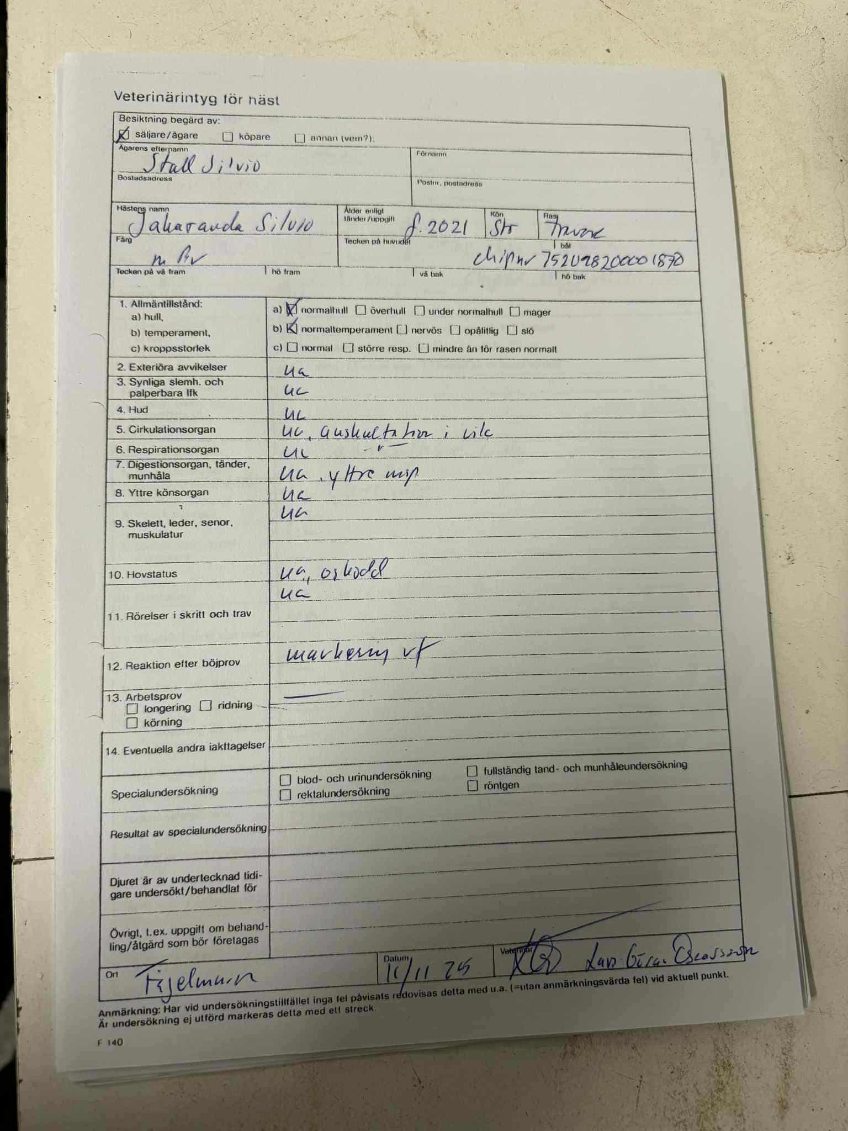 Veterinärintyg för häst
Besiktning begärd av:
säljare/ägare köpare annan (vem?):
Ägarens efternamn Förnamn
Stall Silvio
Bostadsadress Postnr, postadress
Hästens namn Ålder enligt tänder/uppgift Kön Ras
Jakaranda Silvio f. 2021 Sto
Färg Tecken på huvudet
m br chipnr
Tecken på vä fram hö fram vä bak hö bak
1. Allmäntillstånd:
a) hull, a) normalhull överhull under normalhull mager
b) temperament, b) normaltemperament nervös opålitlig slö
c) kroppsstorlek c) normal större resp. mindre än för rasen normalt
2. Exteriöra avvikelser ua
3. Synliga slemh. och palperbara lfk ua
4. Hud ua
5. Cirkulationsorgan ua, auskultation i vila
6. Respirationsorgan ua
7. Digestionsorgan, tänder, munhåla ua, yttre insp
8. Yttre könsorgan ua
9. Skelett, leder, senor, muskulatur ua
10. Hovstatus ua, oskodd
11. Rörelser i skritt och trav ua
12. Reaktion efter böjprov markering vf
13. Arbetsprov
longering ridning
körning
14. Eventuella andra iakttagelser
Specialundersökning blod- och urinundersökning fullständig tand- och munhåleundersökning
rektalundersökning röntgen
Resultat av specialundersökning
Djuret är av undertecknad tidi-
gare undersökt/behandlat för
Övrigt, t.ex. uppgift om behand-
ling/åtgärd som bör företagas
Ort Datum Veterinär
11/11 25
Anmärkning: Har vid undersökningstillfället inga fel påvisats redovisas detta med u.a. (=utan anmärkningsvärda fel) vid aktuell punkt.
Är undersökning ej utförd markeras detta med ett streck.
F 140